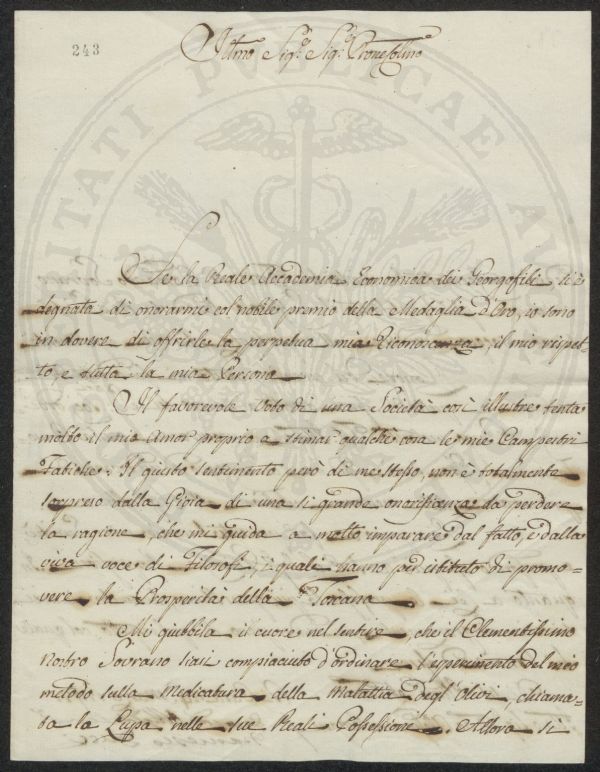 243
Illmo Sigr. Sigr. Prone Colmo
Se la Reale Accademia Economica dei Georgofili, si è
degnata di onorarmi col nobile premio della Medaglia d'Oro, io sono
in dovere di offrirle la perpetua mia Riconoscenza, il mio rispet-
to, e tutta la mia Persona
Il favorevole Voto di una Società così illustre tenta
molto il mio Amor proprio a stimar qualche cosa le mie Campestri
Fatiche. Il giusto sentimento però di me stesso, non è totalmente
sorpreso dalla Gioia di una si grande onorificenza da perdere
la ragione, che mi guida a molto imparare dal fatto, e dalla
viva voce di Filosofi, i quali hanno per istituto di promo-
vere la Prosperità della Toscana
Mi giubbila il cuore nel sentire, che il Clementissimo
Nostro Sovrano siasi compiaciuto d'ordinare l'esperimento del mio
metodo sulla Medicatura della Malattia degl'Olivi, chiama-
ta la Lupa nelle sue Reali Possessione. Allora si
PUBLICAE